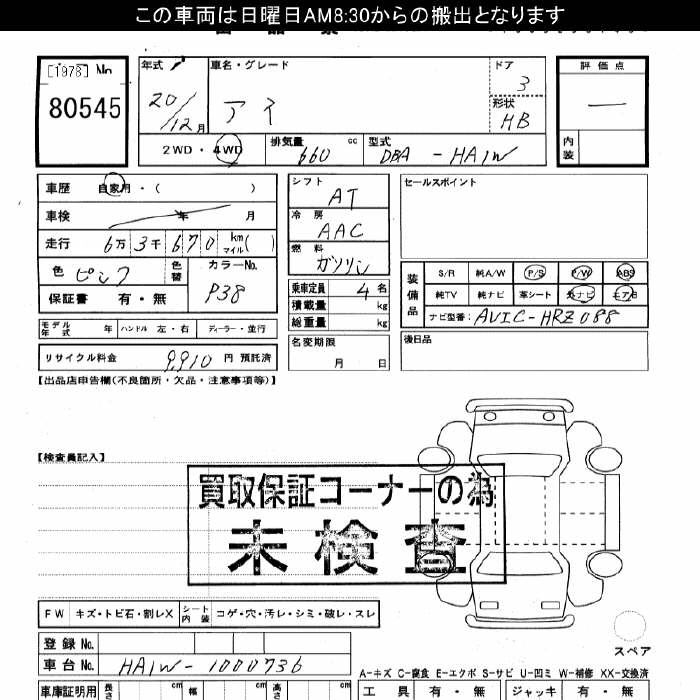 この車両は日曜日AM8:30からの搬出となります
[1978] No
80545
年式
20/12月
車名・グレード
アイ
ドア
3
形状
HB
評価点
―
内装
2WD・4WD
排気量 660 cc
型式 DBA-HA1W
車歴 自家用・( )
車検 年 月
走行 6万3千670 km マイル( )
色 ピンク 色替
カラーNo. P38
保証書 有・無
シフト AT
冷房 AAC
燃料 ガソリン
乗車定員 4名
積載量 kg
総重量 kg
名変期限
月 日
セールスポイント
装備品
S/R 純A/W P/S P/W ABS
純TV 純ナビ 革シート 外ナビ エアB
ナビ型番: AVIC-HRZ088
後日品
モデル年式 年 ハンドル 左・右 ディーラー・並行
リサイクル料金 9,910 円 預託済
【出品店申告欄(不良箇所・欠品・注意事項等)】
【検査員記入】
買取保証コーナーの為
未検査
FW キズ・トビ石・割レX シート内装 コゲ・穴・汚レ・シミ・破レ・スレ
スペア
登録No.
車台No. HA1W-1000736
A-キズ C-腐食 E-エクボ S-サビ U-凹ミ W-補修 XX-交換済
車庫証明用 長さ cm 幅 cm 高さ cm
工具 有・無 ジャッキ 有・無